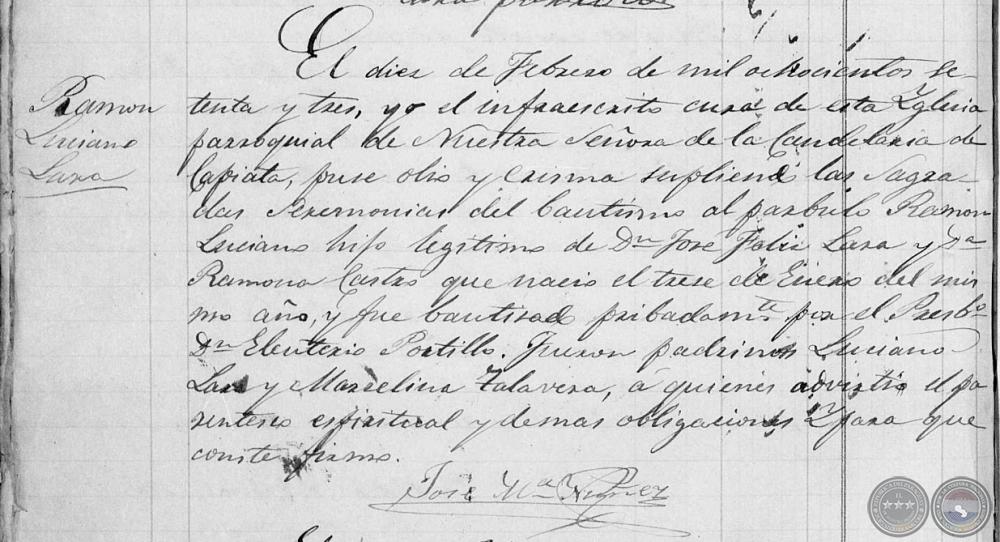 El diez de Febrero de mil ochocientos se-
Ramon
Luciano
Lara
tenta y tres, yo el infraescrito cura de esta Yglecia
parroquial de Nuestra Señora de la Candelaria de
Capiata, puse olio y crisma supliendo las Sagra-
das Seremonias del bautismo al parbulo Ramon
Luciano hijo legitimo de Dn José Felix Lara y Da
Ramona Castro que nacio el trese de Enero del mis
mo año, y fue bautisado pribadamte por el Presbo
Dn Eleuterio Portillo. Fueron padrinos Luciano
Lara y Marcelina Talavera, á quienes advirtio el pa
rentesco espiritual y demas obligaciones Y para que
conste firmo.
José Ma Nuñez